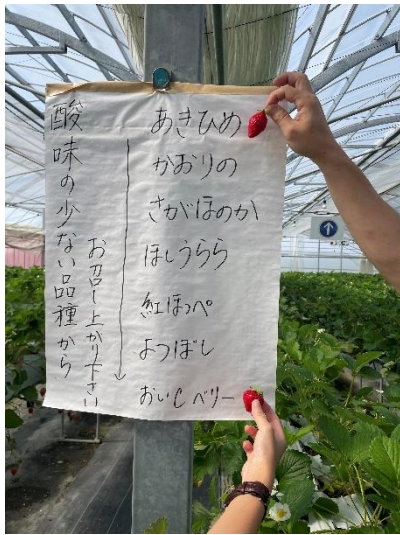 酸味の少ない品種から
お召し上がり下さい
あきひめ
かおりの
さがほのか
ほしうらら
紅ほっぺ
よつぼし
おいCベリー